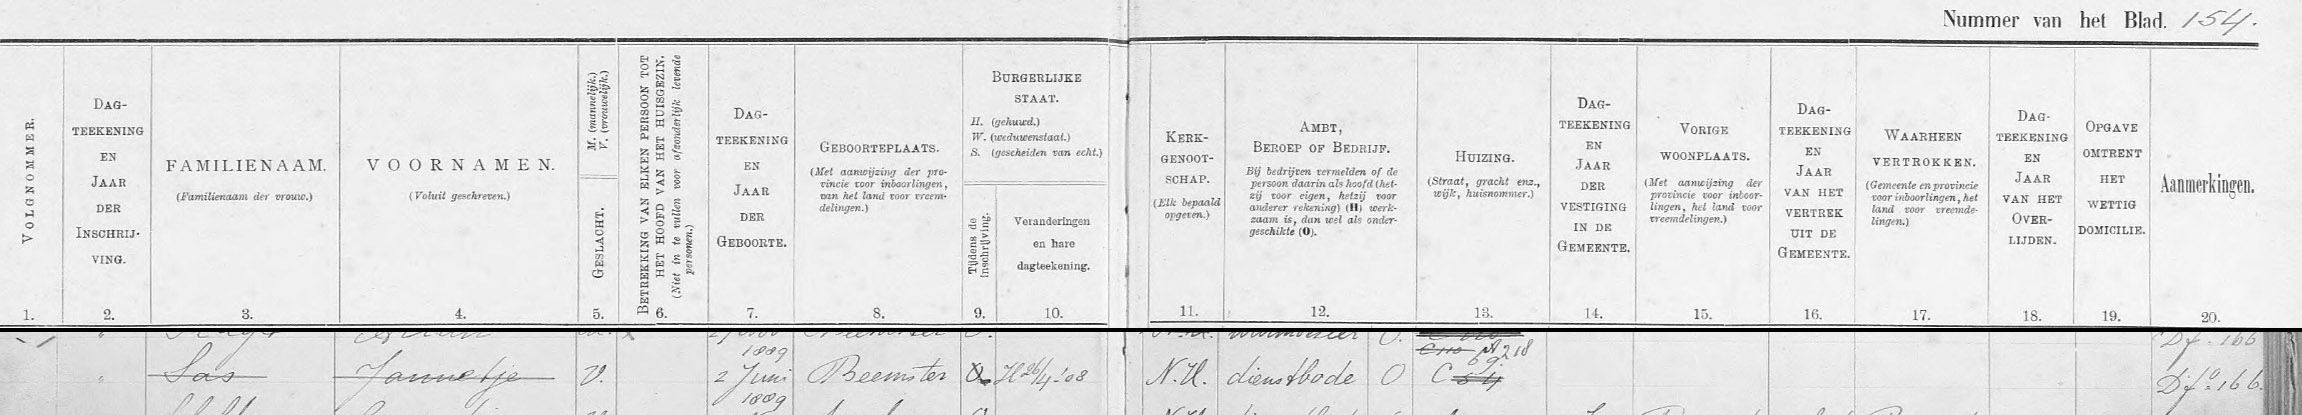 Nummer van het Blad. 154.
VOLGNOMMER.
1.
DAG-
TEEKENING
EN
JAAR
DER
INSCHRIJ-
VING.
2.
FAMILIENAAM.
(Familienaam der vrouw.)
3.
VOORNAMEN.
(Voluit geschreven.)
4.
M. (mannelijk.)
V. (vrouwelijk.)
GESLACHT.
5.
BETREKKING VAN ELKEN PERSOON TOT
HET HOOFD VAN HET HUISGEZIN.
(Niet in te vullen voor afzonderlijk levende
personen.)
6.
DAG-
TEEKENING
EN
JAAR
DER
GEBOORTE.
7.
GEBOORTEPLAATS.
(Met aanwijzing der pro-
vincie voor inboorlingen,
van het land voor vreem-
delingen.)
8.
BURGERLIJKE
STAAT.
H. (gehuwd.)
W. (weduwenstaat.)
S. (gescheiden van echt.)
Tijdens de
inschrijving.
9.
Veranderingen
en hare
dagteekening.
10.
KERK-
GENOOT-
SCHAP.
(Elk bepaald
opgeven.)
11.
AMBT,
BEROEP OF BEDRIJF.
Bij bedrijven vermelden of de
persoon daarin als hoofd (het-
zij voor eigen, hetzij voor
anderer rekening) (H) werk-
zaam is, dan wel als onder-
geschikte (O).
12.
HUIZING.
(Straat, gracht enz.,
wijk, huisnommer.)
13.
DAG-
TEEKENING
EN
JAAR
DER
VESTIGING
IN DE
GEMEENTE.
14.
VORIGE
WOONPLAATS.
(Met aanwijzing der
provincie voor inboor-
lingen, het land voor
vreemdelingen.)
15.
DAG-
TEEKENING
EN
JAAR
VAN HET
VERTREK
UIT DE
GEMEENTE.
16.
WAARHEEN
VERTROKKEN.
(Gemeente en provincie
voor inboorlingen, het
land voor vreemde-
lingen.)
17.
DAG-
TEEKENING
EN
JAAR
VAN HET
OVER-
LIJDEN.
18.
OPGAVE
OMTRENT
HET
WETTIG
DOMICILIE.
19.
Aanmerkingen.
20.
1889
A 218
69
Sas Jannetje V. 2 Juni Beemster O. H 26/4-'08 N.H. dienstbode O C 54 Df° 166.
1889